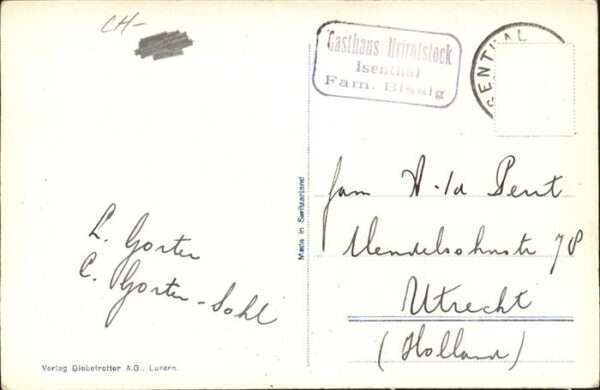 CH-
Gasthaus Urirotstock
Isenthal
Fam. Bissig
SENTHAL
Made in Switzerland
L. Gorter
C. Gorter-Sohl
Fam
Mendelsohnstr 78
Utrecht
(Holland)
Verlag Globetrotter A.G., Luzern.